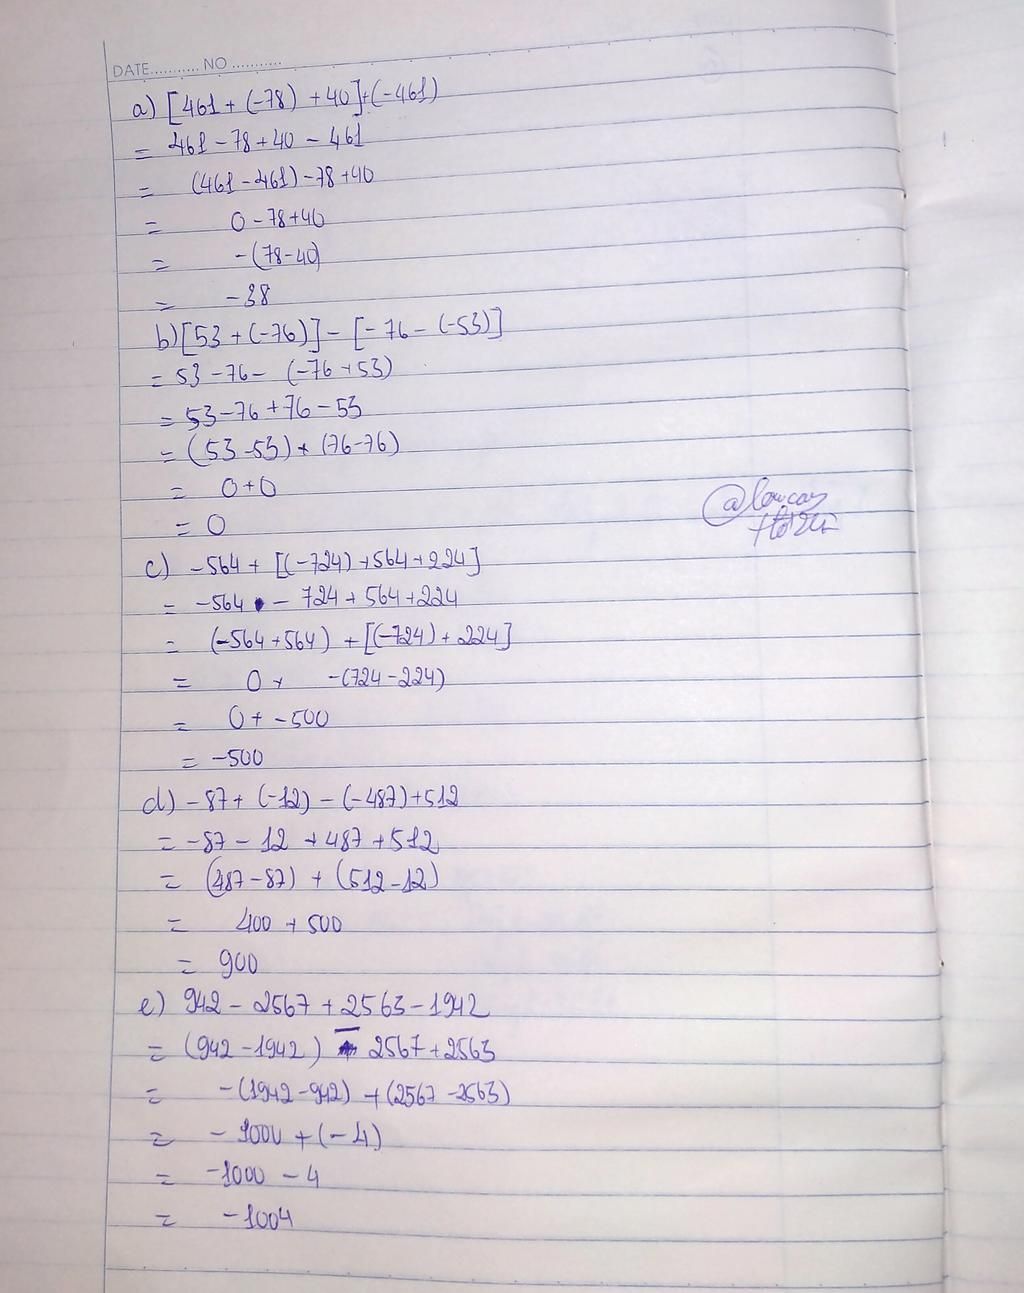 DATE........... NO ...........
a) [461 + (-78) + 40]+(-461)
= 461 - 78 + 40 - 461
= (461 - 461) - 78 + 40
= 0 - 78 + 40
= -(78 - 40)
= -38
b) [53 + (-76)] - [-76 - (-53)]
= 53 - 76 - (-76 + 53)
= 53 - 76 + 76 - 53
= (53 - 53) + (76 - 76)
= 0 + 0
= 0
c) -564 + [(-724) + 564 + 224]
= -564 - 724 + 564 + 224
= (-564 + 564) + [(-724) + 224]
= 0 + -(724 - 224)
= 0 + -500
= -500
d) -87 + (-12) - (-487) + 512
= -87 - 12 + 487 + 512
= (487 - 87) + (512 - 12)
= 400 + 500
= 900
e) 942 - 2567 + 2563 - 1942
= (942 - 1942) - 2567 + 2563
= -(1942 - 942) + (2567 - 2563)
= -1000 + (-4)
= -1000 - 4
= -1004